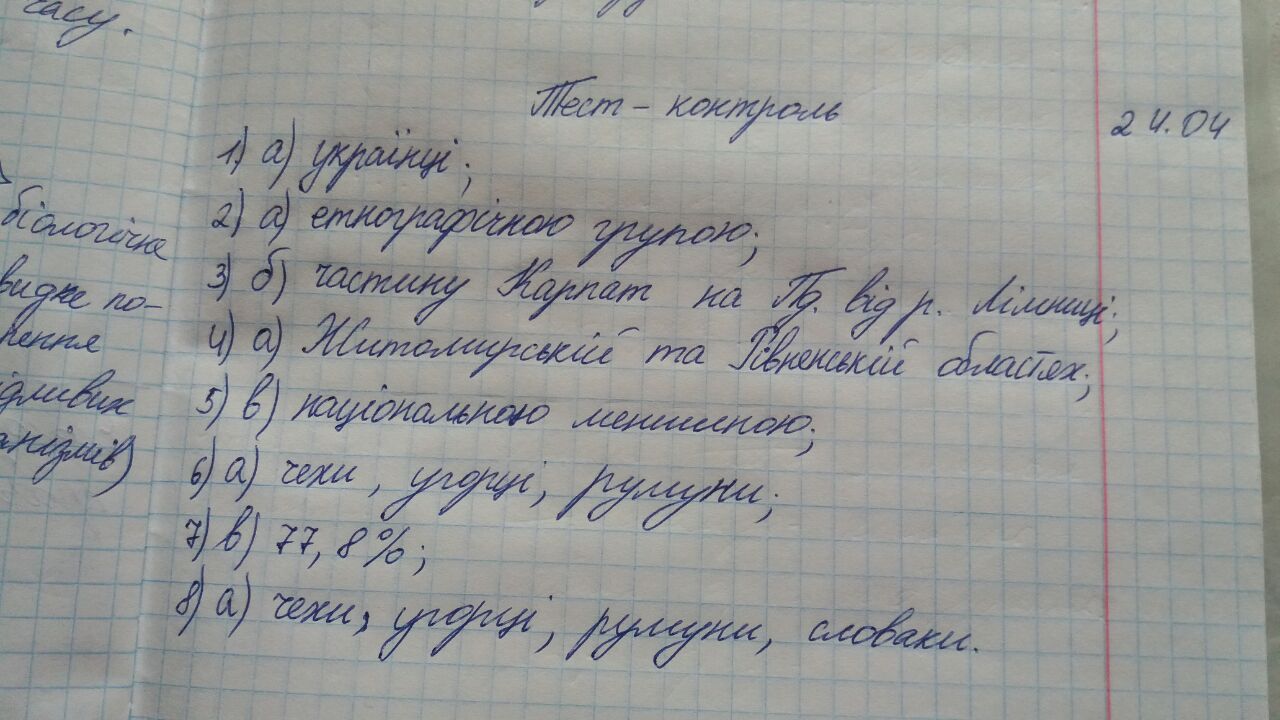 часу.
Тест - контроль
24.04
1) а) українці;
2) а) етнографічною групою;
3) б) частину Карпат на Пд. від р. Лімниці;
4) а) Житомирській та Рівненській областях;
5) в) національною меншиною;
6) а) чехи, угорці, румуни;
7) в) 77,8%;
8) а) чехи, угорці, румуни, словаки.
біологічне
видне по-
дливих
анізмів)